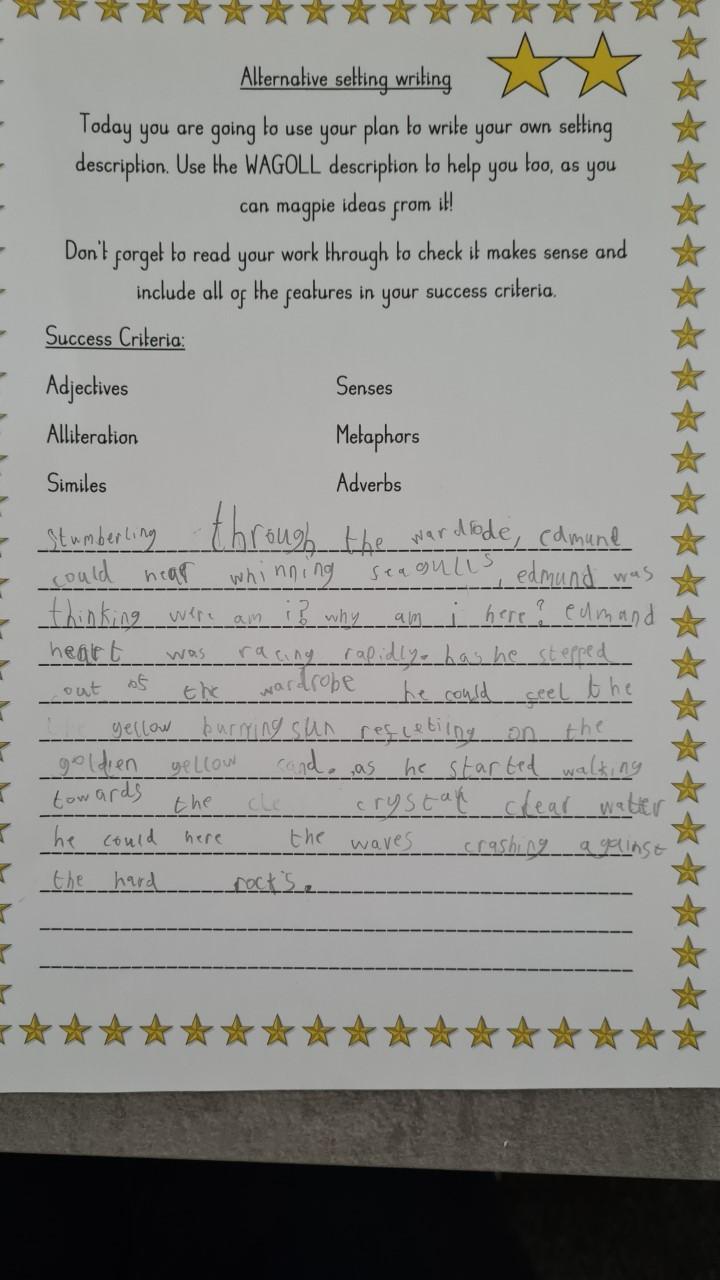 Alternative setting writing
Today you are going to use your plan to write your own setting
description. Use the WAGOLL description to help you too, as you
can magpie ideas from it!
Don't forget to read your work through to check it makes sense and
include all of the features in your success criteria.
Success Criteria:
Adjectives Senses
Alliteration Metaphors
Similes Adverbs
Stumberling through the wardrode, edmund
could hear whinning seagulls, edmund was
thinking were am i? why am i here? edmand
heart was racing rapidly. has he stepped
out of the wardrobe he could feel the
yellow burrning sun reflcetiing on the
goldien yellow sand. as he started walking
towards the cle crystal clear water
he could here the waves crashing against
the hard rock's.